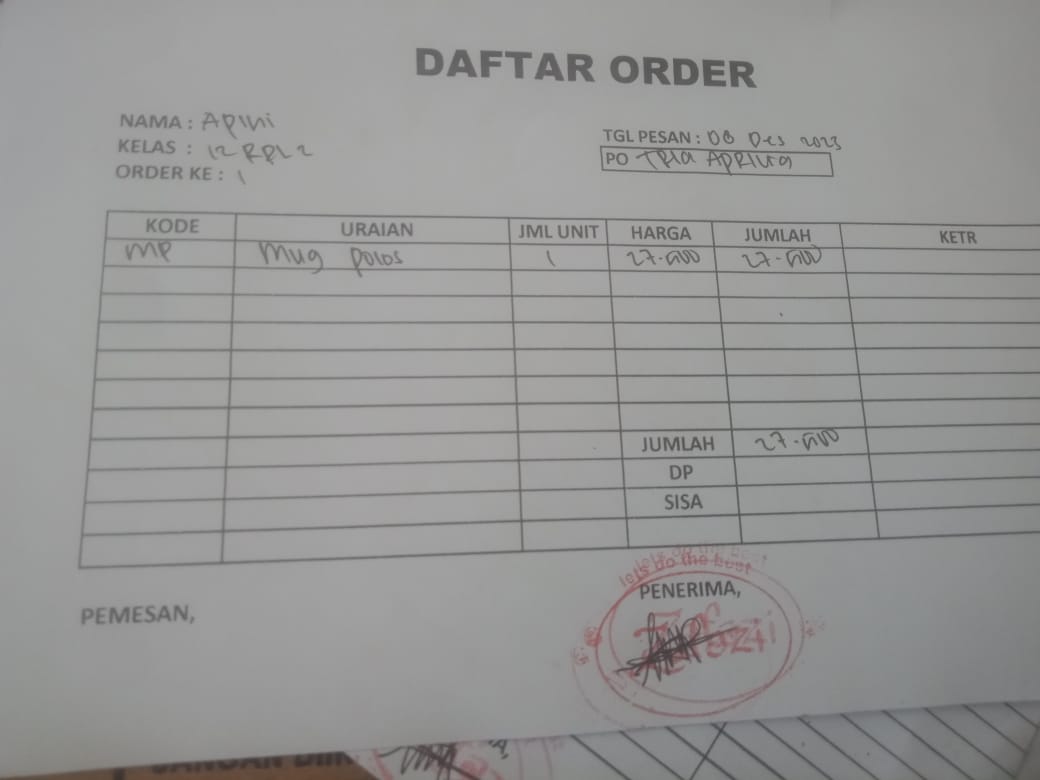 DAFTAR ORDER
NAMA : Apini
KELAS : 12 RPL 2
ORDER KE : 1
TGL PESAN : 08 Des 2023
PO TRIA APRILIA
KODE URAIAN JML UNIT HARGA JUMLAH KETR
MP Mug Polos 1 27.500 27.500
JUMLAH 27.500
DP
SISA
PEMESAN,
lets do the best
PENERIMA,